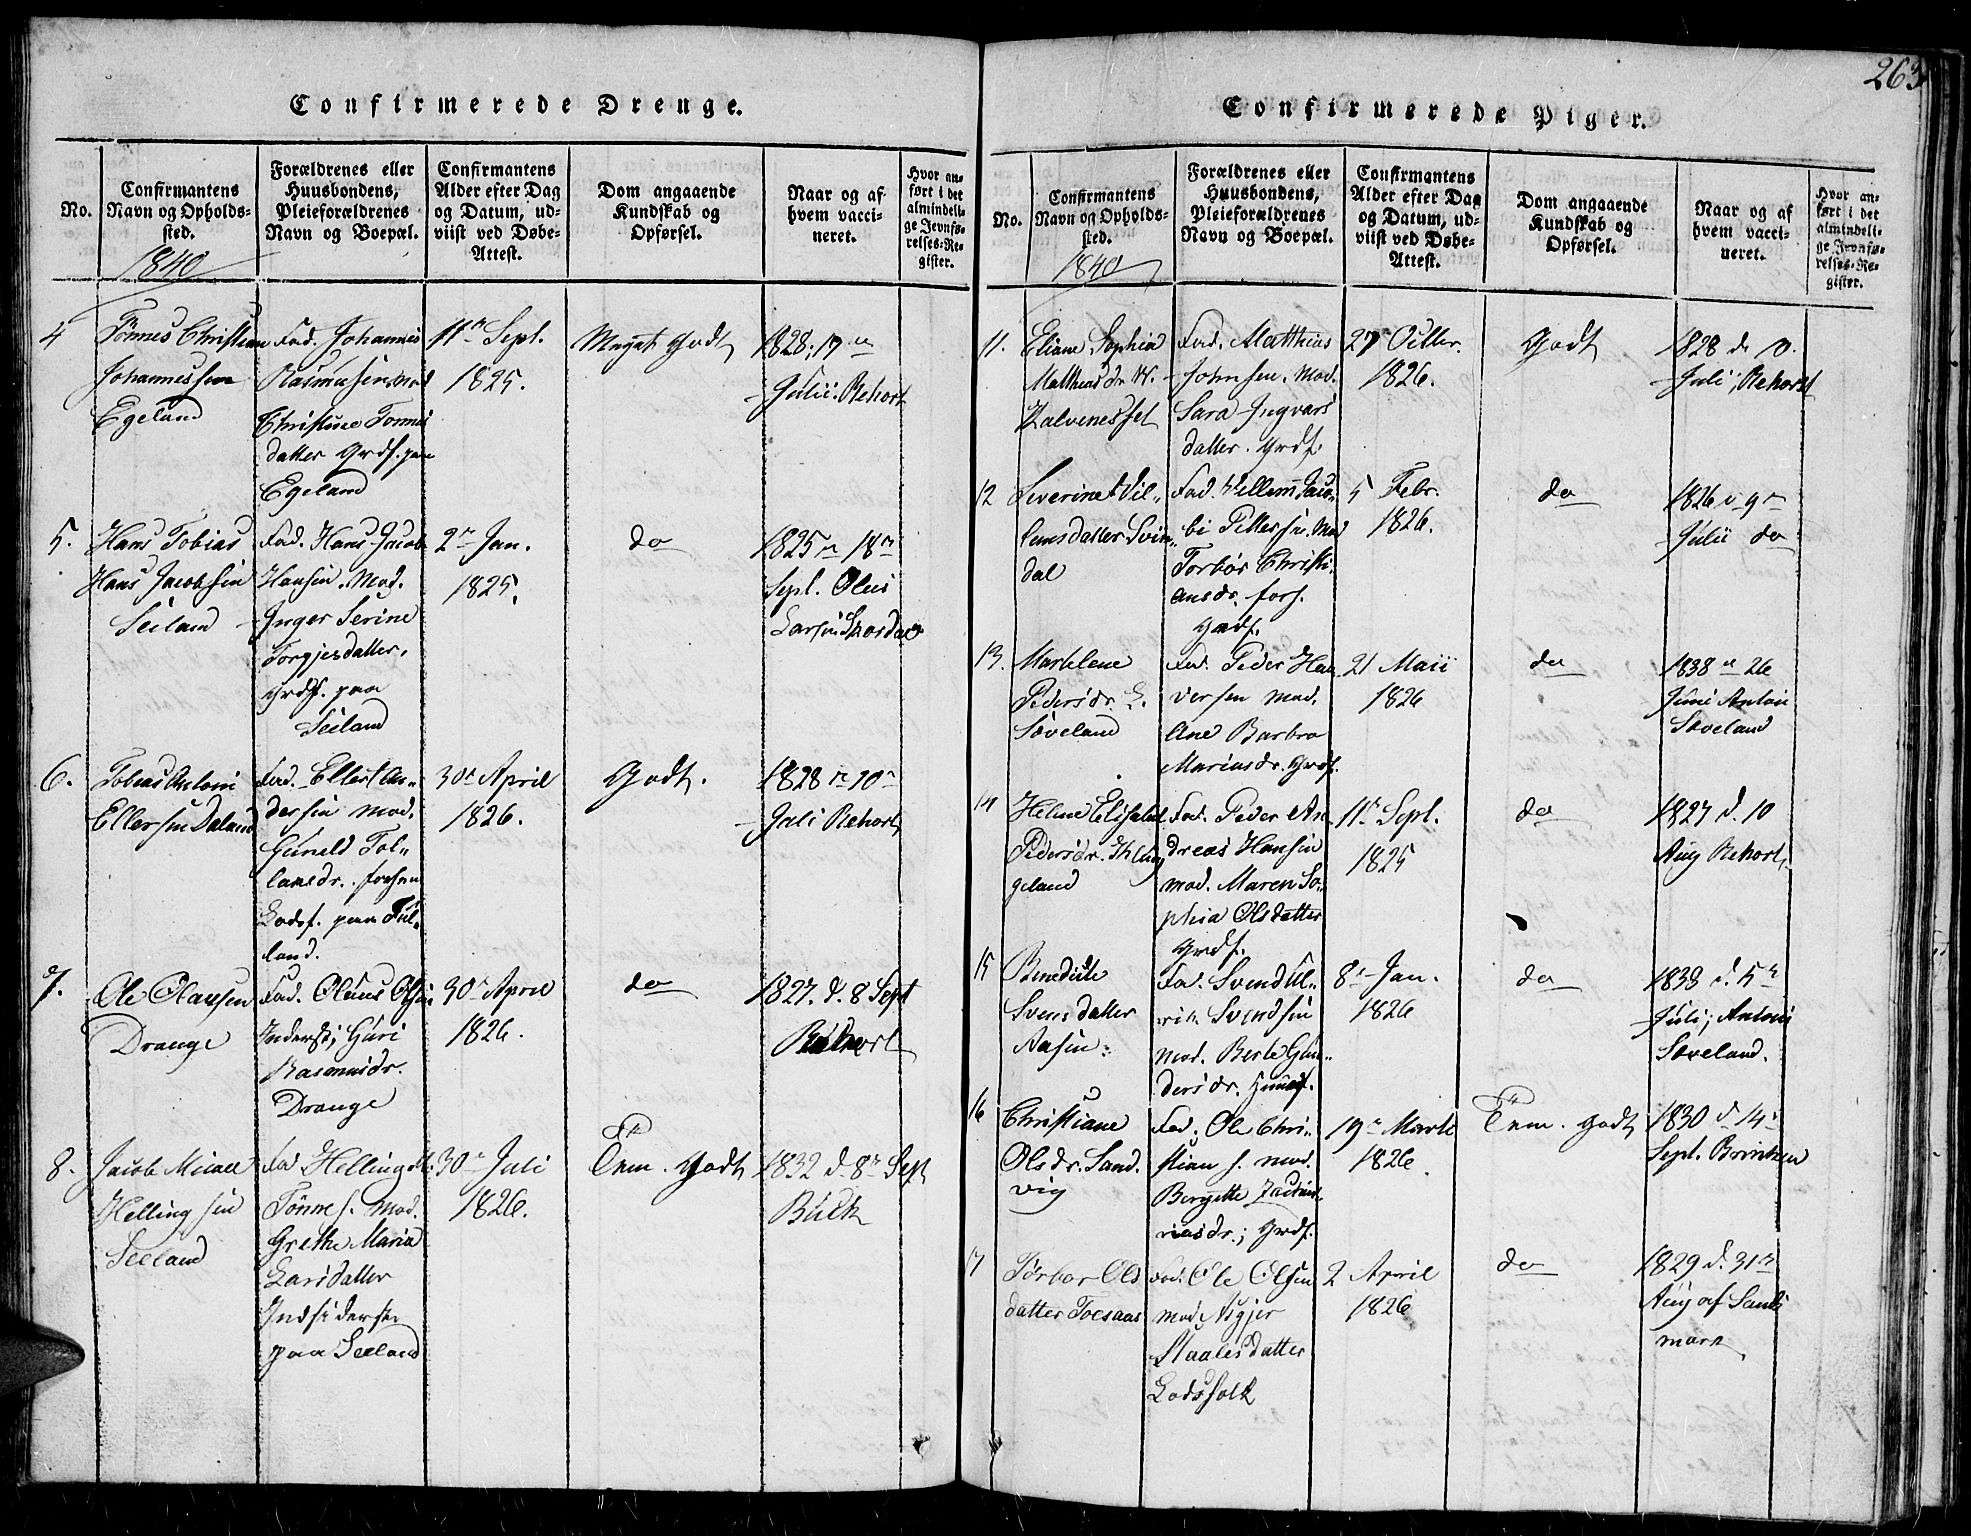 263
Confirmerede Drenge.
No.
Confirmantens
Navn og Opholds-
sted.
1840
Forældrenes eller
Huusbondens,
Pleieforældrenes
Navn og Boepæl.
Confirmantens
Alder efter Dag
og Datum, ud-
viist ved Døbe-
Attest.
Dom angaaende
Kundskab og
Opførsel.
Naar og af
hvem vacci-
neret.
Hvor an-
ført i det
almindeli-
ge Jevnfø-
relses-Re-
gister.
4
Tönnes Christian
Johannessen
Egeland
Fad. Johannes
Rasmusen, mod
Christine Tönnes
datter Grdf. paa
Egeland
11te Sept.
1825.
Meget Godt
1828, 17de
Julii. Rehort
5.
Hans Tobias
Hans Jacobsen
Seiland
Fad. Hans Jacob
Hansen. Mod.
Inger Serine
Torgjesdatter,
Grdf. paa
Seiland
2de Jan.
1825.
do
1825 18de
Sept. Oluf
Larsen
6.
Tobias Antoni
Ellersen Daland
Fad. Ellert An-
dersen mod.
Guneld Tol-
lansdr.
Lodsf. paa
land.
30te April
1826.
Godt.
1828 10de
Juli Rehort
7.
Ole Olausen
Drange
Fad. Olaus Olsen
Inderst; Guri
Rasmusdr.
Drange
30te April
1826.
do
1827. d. 8 Sept
Rehort
8.
Jacob Micael
Helling sen
Seeland
Fad. Helling
Tönnes. Mod.
Grethe Maria
Larsdatter
Indsiderster
paa Seeland
30te Juli
1826.
Tem. Godt
1832 d. 8de Sept
Buch
Confirmerede Piger.
No.
Confirmantens
Navn og Opholds-
sted.
1840
Forældrenes eller
Huusbondens,
Pleieforældrenes
Navn og Boepæl.
Confirmantens
Alder efter Dag
og Datum, ud-
viist ved Døbe-
Attest.
Dom angaaende
Kundskab og
Opførsel.
Naar og af
hvem vacci-
neret.
Hvor an-
ført i det
almindeli-
ge Jevnfø-
relses-Re-
gister.
11.
Eliane Sophia
Matthiasdr
Fad. Matthias
Johnsen. Mod.
Sara Ingvars
datter. Grdf.
27 Octbr.
1826.
Godt
1828 d. 10.
Juli; Rehorst
12
Severine Vil-
lumsdatter Svin-
dal
Fad. Villum Jaco-
bi Pettersen. Mod
Torbor Christi-
ansdr.
Grdf.
5 Febr.
1826.
do
1826 9de
Julii do
13.
Marthlene
Pedersdr. L.
Söveland
Fad. Peder Hal
versen mod.
Ane Barbra
Mariasdr. Grdf.
21 Maii
1826
do
1838 26
Juni Antoni
Söveland
14
Helene Elisabet
Pedersdr.
geland
Fad. Peder An
dreas Hansen
mod. Maren So-
phia Olsdatter
Grdf.
11te Sept.
1825
do
1827 d. 10
Aug Rehort
15
Benedicte
Svensdatter
Aasen
Fad. Svend Ul-
rik Svendsen
mod. Berte Gun-
dersdr.
8de Jan.
1826
do
1838 d. 5te
Juli; Antoni
Söveland.
16
Christiane
Olsdr. Sand
vig
Fad. Ole Chri-
stian s. mod.
Bergitte Zacha-
riasdr.; Grdf.
19de Marti
1826
Tem. Godt
1830 d 14de
Sept. Brinken
17
Törbor Ols
datter Toesaas
Fad. Ole Olsen
mod. Asgjer
Staalesdatter
Lodsfolk
2 April
1826
do
1829 d. 31te
Aug af Sand
mark